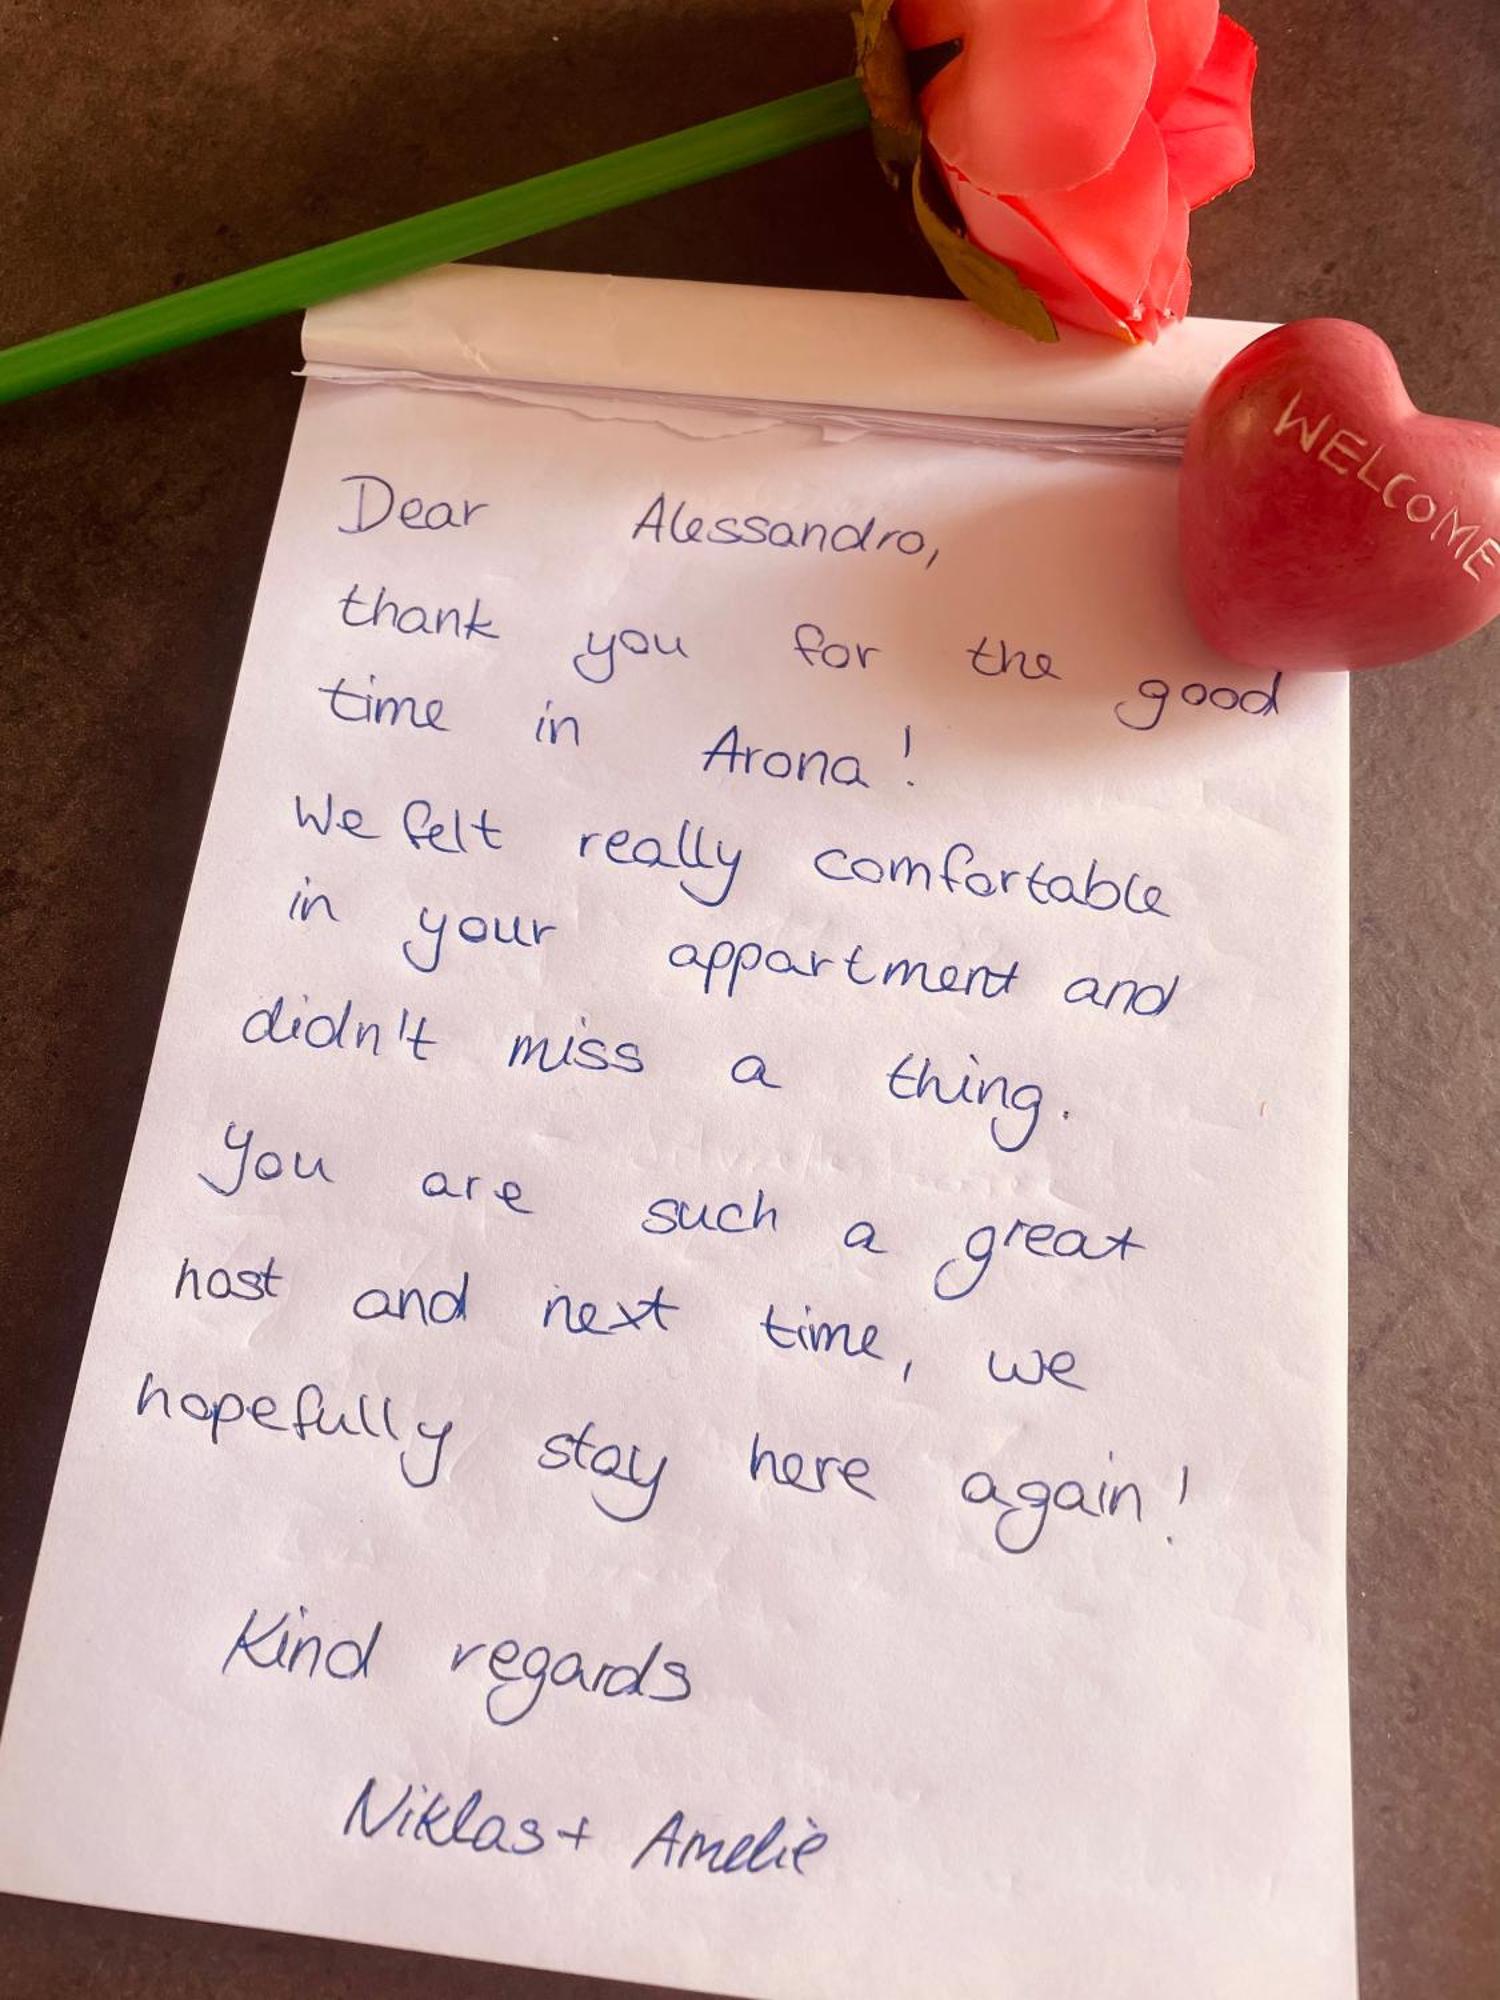 WELCOME
Dear Alessandro,
thank you for the good
time in Arona!
We felt really comfortable
in your appartment and
didn't miss a thing.
You are such a great
host and next time, we
hopefully stay here again!
Kind regards
Niklas + Amelie